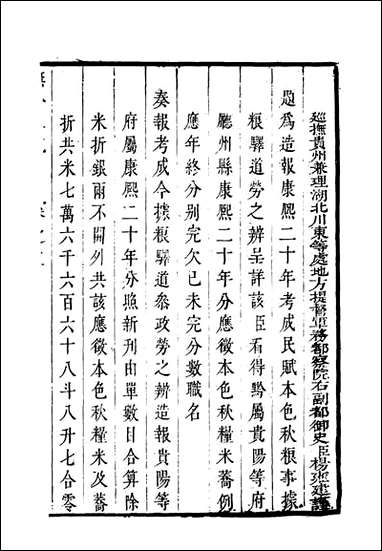 巡撫貴州兼理湖北川東等處地方提督軍務都察院右副都御史臣楊雍建謹
題為造報康熙二十年考成民賦本色秋粮事據
粮驛道勞之辨呈詳該臣看得黔屬貴陽等府
廳州縣康熙二十年分應徵本色秋糧米蕎例
應年終分别完欠已未完分數職名
奏報考成今據粮驛道叅政勞之辨造報貴陽等
府屬康熙二十年分照新刊由單數目合算除
米折銀兩不開外共該應徵本色秋糧米及蕎
折共米七萬六千六百六十八斗八升七合零